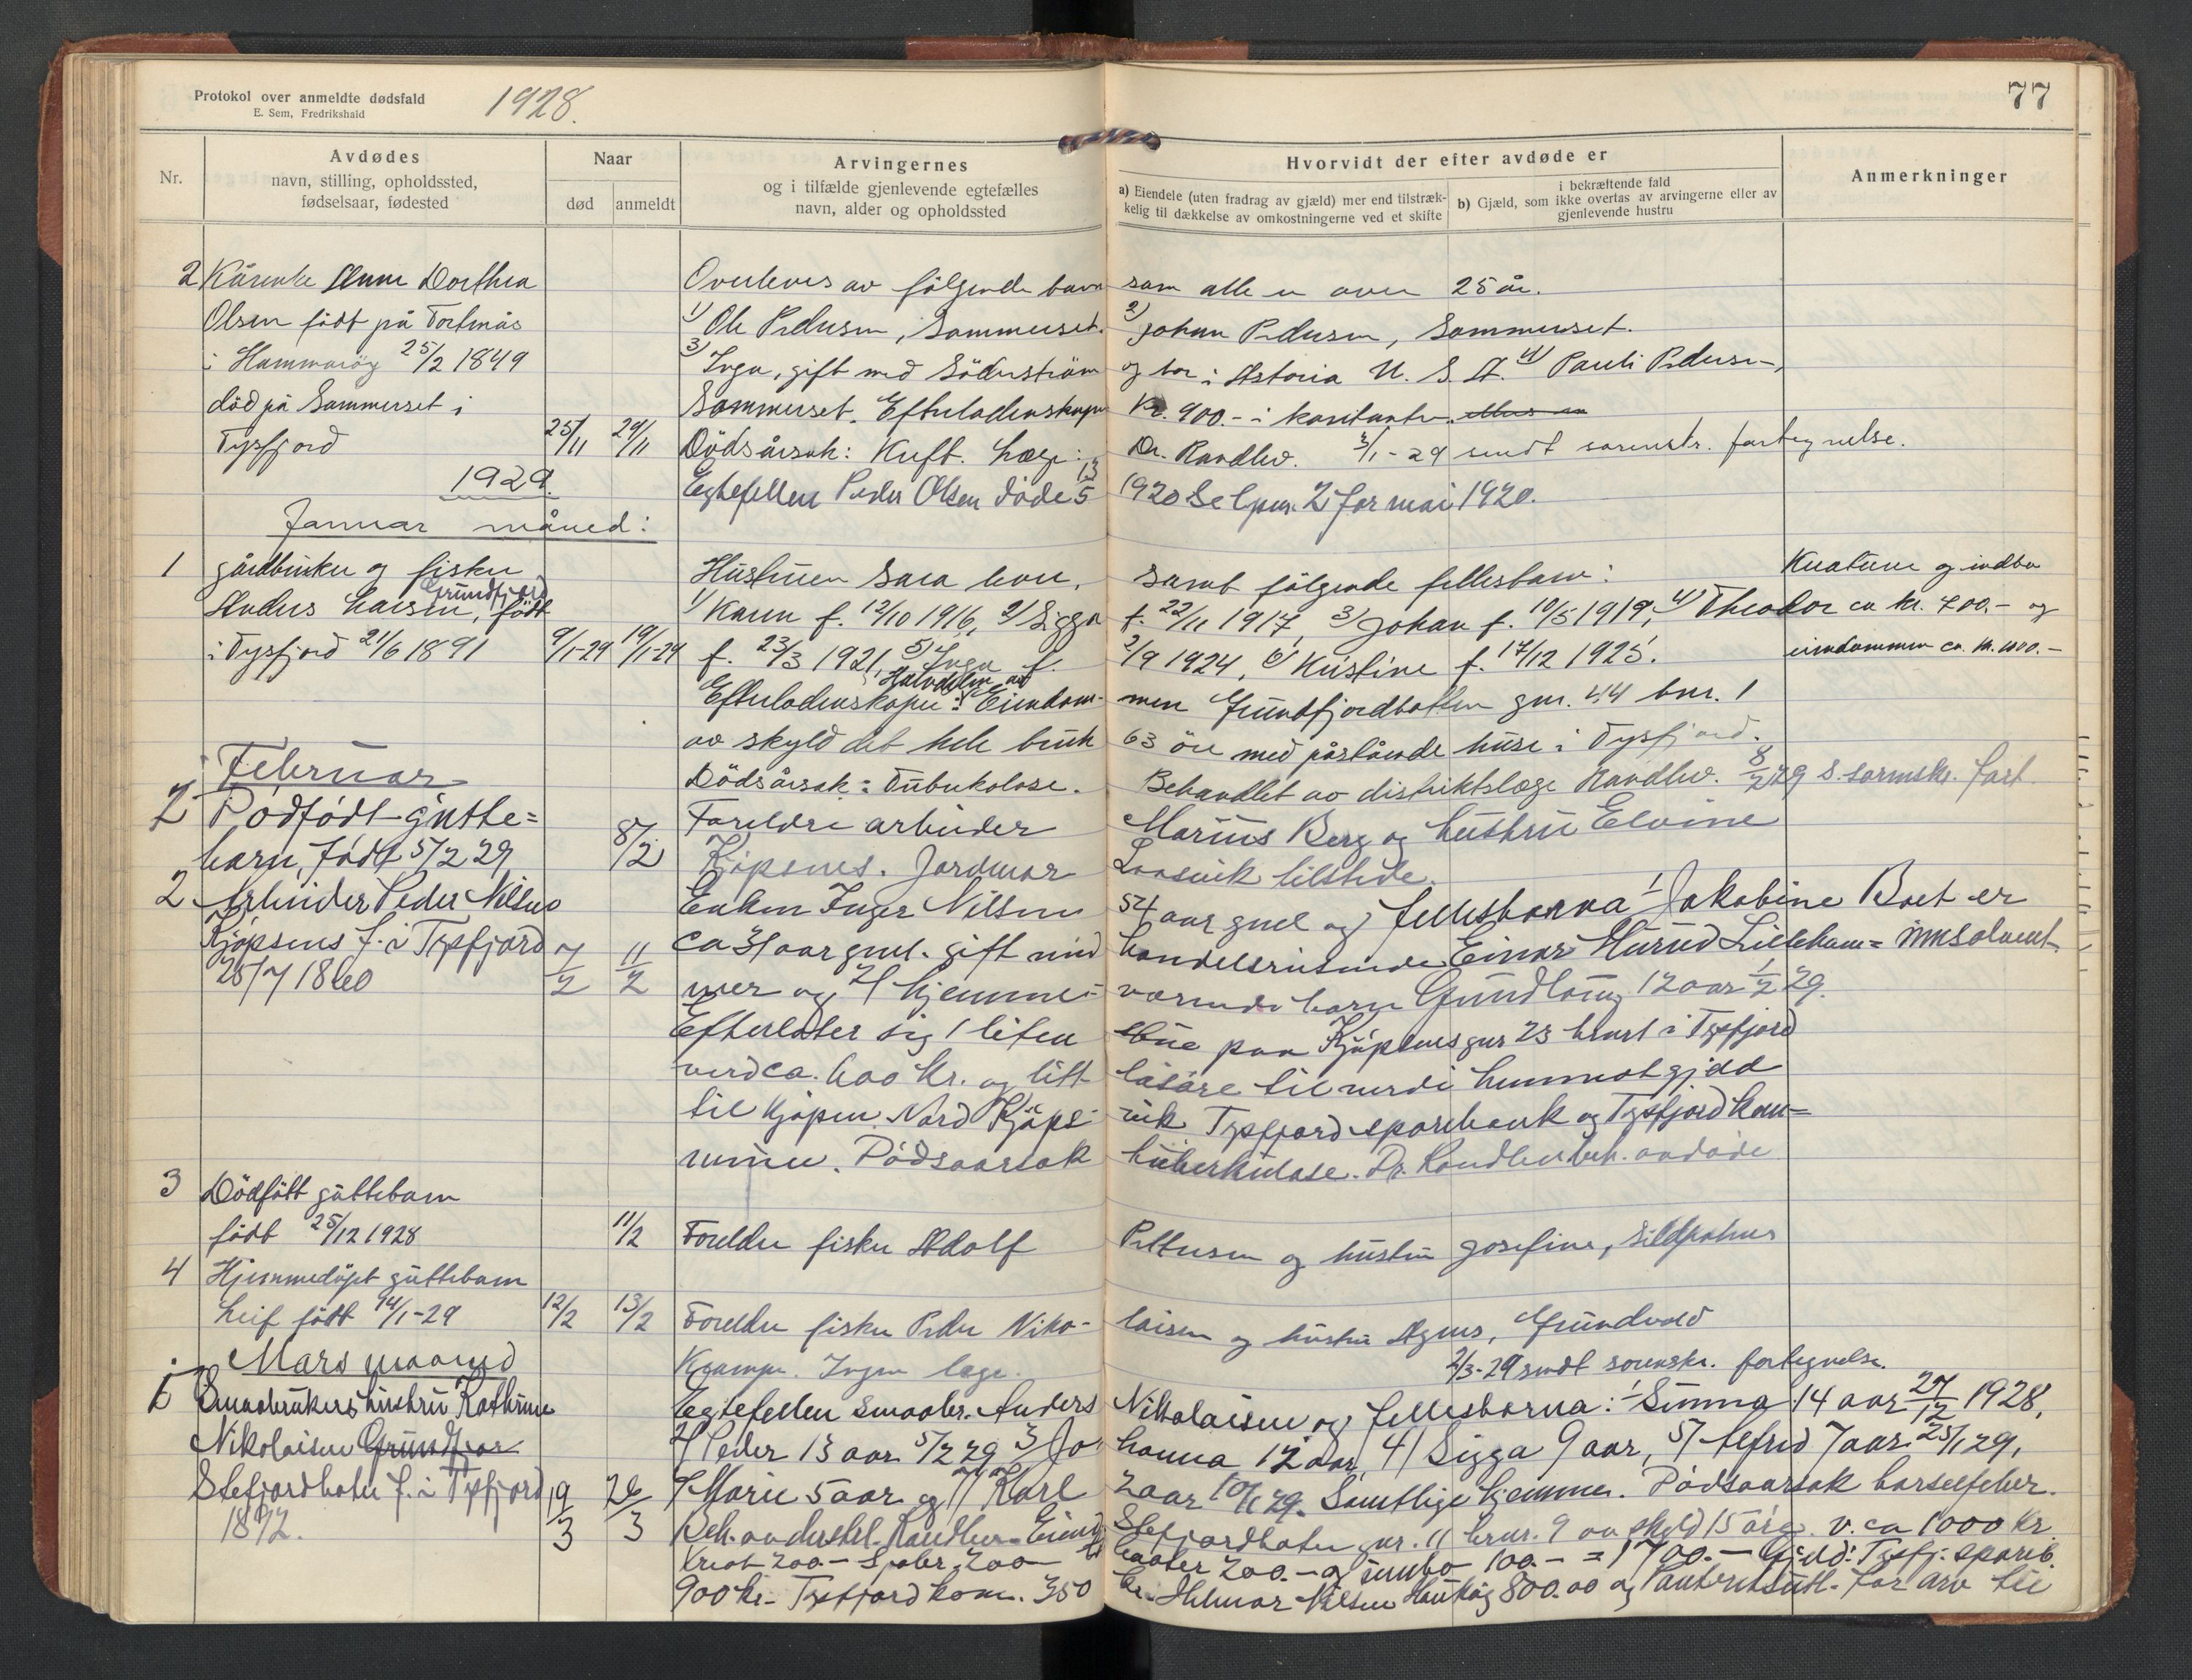 Protokol over anmeldte dødsfald
E. Sem, Fredrikshald
1928.
77
Nr.
Avdødes
navn, stilling, opholdssted,
fødselsaar, fødested
Naar
død
anmeldt
Arvingernes
og i tilfælde gjenlevende egtefælles
navn, alder og opholdssted
Hvorvidt der efter avdøde er
a) Eiendele (uten fradrag av gjæld) mer end tilstræk-
kelig til dækkelse av omkostningerne ved et skifte
i bekræftende fald
b) Gjæld, som ikke overtas av arvingerne eller av
gjenlevende hustru
Anmerkninger
2 Anne Dorthea Overleves av følgende barn som alle er over 25 år.
Olsen født på 1) Ole Pedersen, Sommerset. 2) Johan Pedersen, Sommerset.
i Hammarøy 25/2 1849 3) Inga, gift med Söderström og bor i Astoria U. S. A. 4) Pauli Pedersen,
död på Sommerset i Sommerset. Efterladenskaper Kr. 900.- i kontanter.
Tysfjord 25/11 29/11 Dödsårsak: Kreft. Læge: Dr. Randlev. 3/1-29 sendt sorenskr. fortegnelse.
1929. Egtefellen Peder Olsen döde 13/5 1920 Se lpnr. 2 for mai 1920.
Januar måned:
1 gårdbruker og fisker Hustruen Sara samt følgende fellesbarn: Kreature og indbo
Anders Larsen, Grundfjord født 1) Karen f. 12/10 1916, 2) Sigga f. 22/11 1917, 3) Johan f. 10/5 1919, 4) Theodor ca kr. 700.- og
i Tysfjord 21/6 1891 9/1-29 19/1-29 f. 23/3 1921, 5) Inga f. 2/9 1924, 6) Kristine f. 17/12 1925. eiendommen ca. kr. 1000.-
Efterladenskaper: Halvdelen av Eiendom- men Grundfjordbotten gnr. 44 bnr. 1
av skyld det hele bruk 63 öre med påstående huse i Tysfjord.
Februar
Dödsårsak: Tuberkolose. Behandlet av distriktslæge Randlev. 8/2 29 s. sorenskr. fort.
2 Dödfödt gutte= Foreldre arbeider Marius Berg og hustru Elvine
barn, födt 5/2 29 8/2 Kjöpsnes. Jordmor tilstede.
2 Arbeider Peder Nilsen Enken Inger Nilsen 54 aar gml og fellesbarna 1 Jakobine Boet er
Kjöpsnes f. i Tysfjord 7/2 11/2 ca 31 aar gml. gift med handelsreisende Einar Lilleham= insolvent
25/7 1860 mer og 2/ hjemme= værende barn Gundlaug 12 aar 1/2 29.
Efterlater sig 1 liten stue paa Kjöpsnes gnr 23 brnr 1 i Tysfjord
verd ca. 600 kr. og litt lösöre til verdi gjeld
til Kjöpm. Nord Kjöps- vik Tysfjord sparebank og Tysfjord kom=
mune. Dödsaarsak tuberkulose. Dr. Randlev beh. avdöde
3 Dödfött guttebarn
födt 25/12 1928 11/2 Foreldre fisker Adolf Pettersen og hustru Josefine,
4 Hjemmedöpt guttebarn
Leif född 14/1-29 12/2 13/2 Foreldre fisker Peder Niko- laisen og hustru Agnes, Grundvold
Mars maaned
Krampe. Ingen læge. 2/3-29 sendt sorenskr. fortegnelse.
1 Smaabrukers hustru Kathrine Egtefellen smaabr. Anders Nikolaisen og fellesbarna: 1 14 aar 27/12 1928,
Nikolaisen Grundfjor 2/ Peder 13 aar 5/2 29 3 Jo- hanna 12 aar, 4/ Sigga 9 aar, 5/ 7 aar 25/1 29,
Stefjordboten f. i Tysfjord 19/3 26/3 Marie 5 aar og 7/ Karl 2 aar 10/1 29. Samtlige hjemme. Dödsaarsak barselfeber.
1892. Beh. av distrl. Randlev. Eiend. Stefjordboten gnr. 11 brnr. 9 av skyld 15 öre v. ca 1000 kr.
kreat 200.- 200 baater 200.- og innbo 100.- = 1700.- Gjeld: Tysfj. spareb.
900 kr.- Tysfjord kom. 350 kr. Hilmar Nilsen 800.00 og for arv til